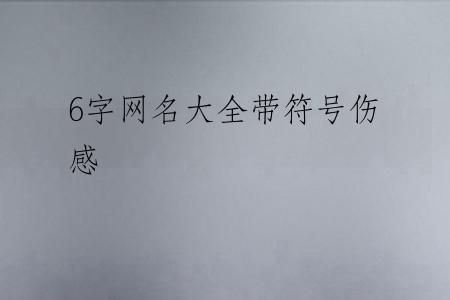 6字网名大全带符号伤
感